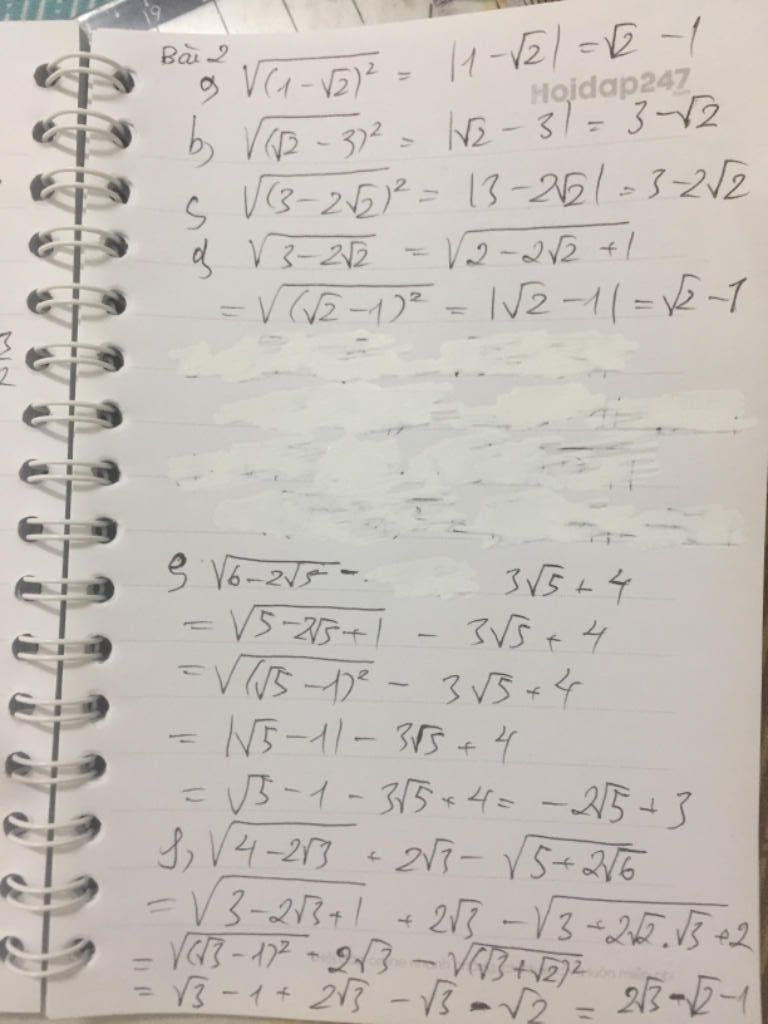 19
Bài 2
a, √(1-√2)² = |1-√2| = √2 - 1
Hoidap247
b, √(√2 - 3)² = |√2 - 3| = 3-√2
c, √(3-2√2)² = |3-2√2| = 3-2√2
d, √3-2√2 = √2-2√2+1
= √(√2-1)² = |√2-1| = √2-1
3
2
e, √6-2√5 - 3√5 + 4
= √5-2√5+1 - 3√5 + 4
= √(√5-1)² - 3√5 + 4
= |√5-1| - 3√5 + 4
= √5-1-3√5+4 = -2√5+3
f, √4-2√3 + 2√3 - √5+2√6
= √3-2√3+1 + 2√3 - √3+2√2.√3+2
= √(√3-1)² + 2√3 - √(√3+√2)²
= √3-1+2√3-√3-√2 = 2√3-√2-1